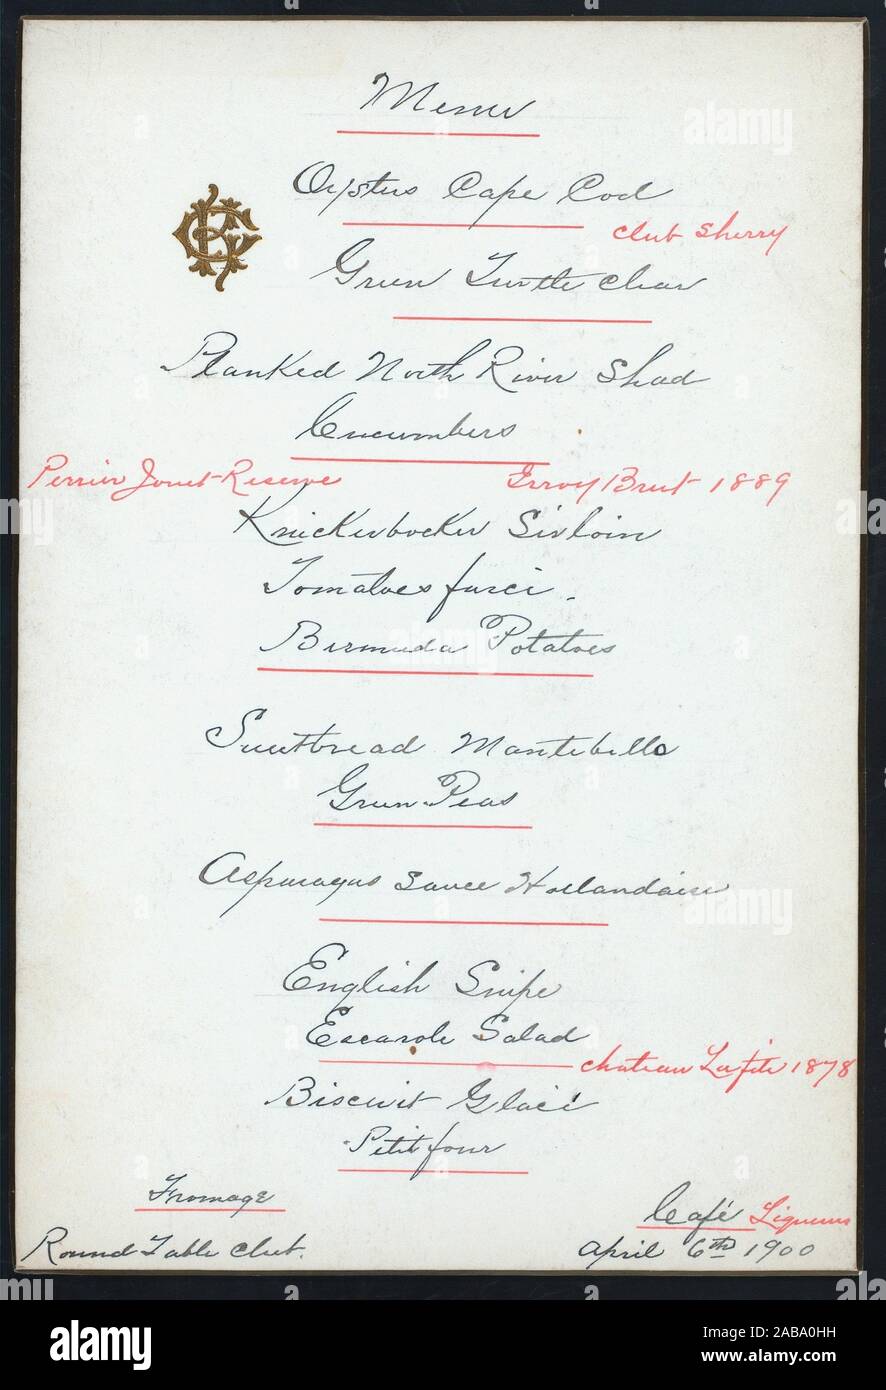 Menu
Oysters Cape Cod
Club Sherry
Green Turtle Clear
Planked North River Shad
Cucumbers
Perrier Jouet Reserve
Irroy Brut 1889
Knickerbocker Sirloin
Tomatoes farci.
Bermuda Potatoes
Sweetbread Montebello
Green Peas
Asparagus Sauce Hollandaise
English Snipe
Escarole Salad
Chateau Lafite 1878
Biscuit Glacé
Petit four
Fromage
Café Liqueurs
Round Table Club.
April 6th 1900
alamy
Image ID: 2ABA0HH
www.alamy.com